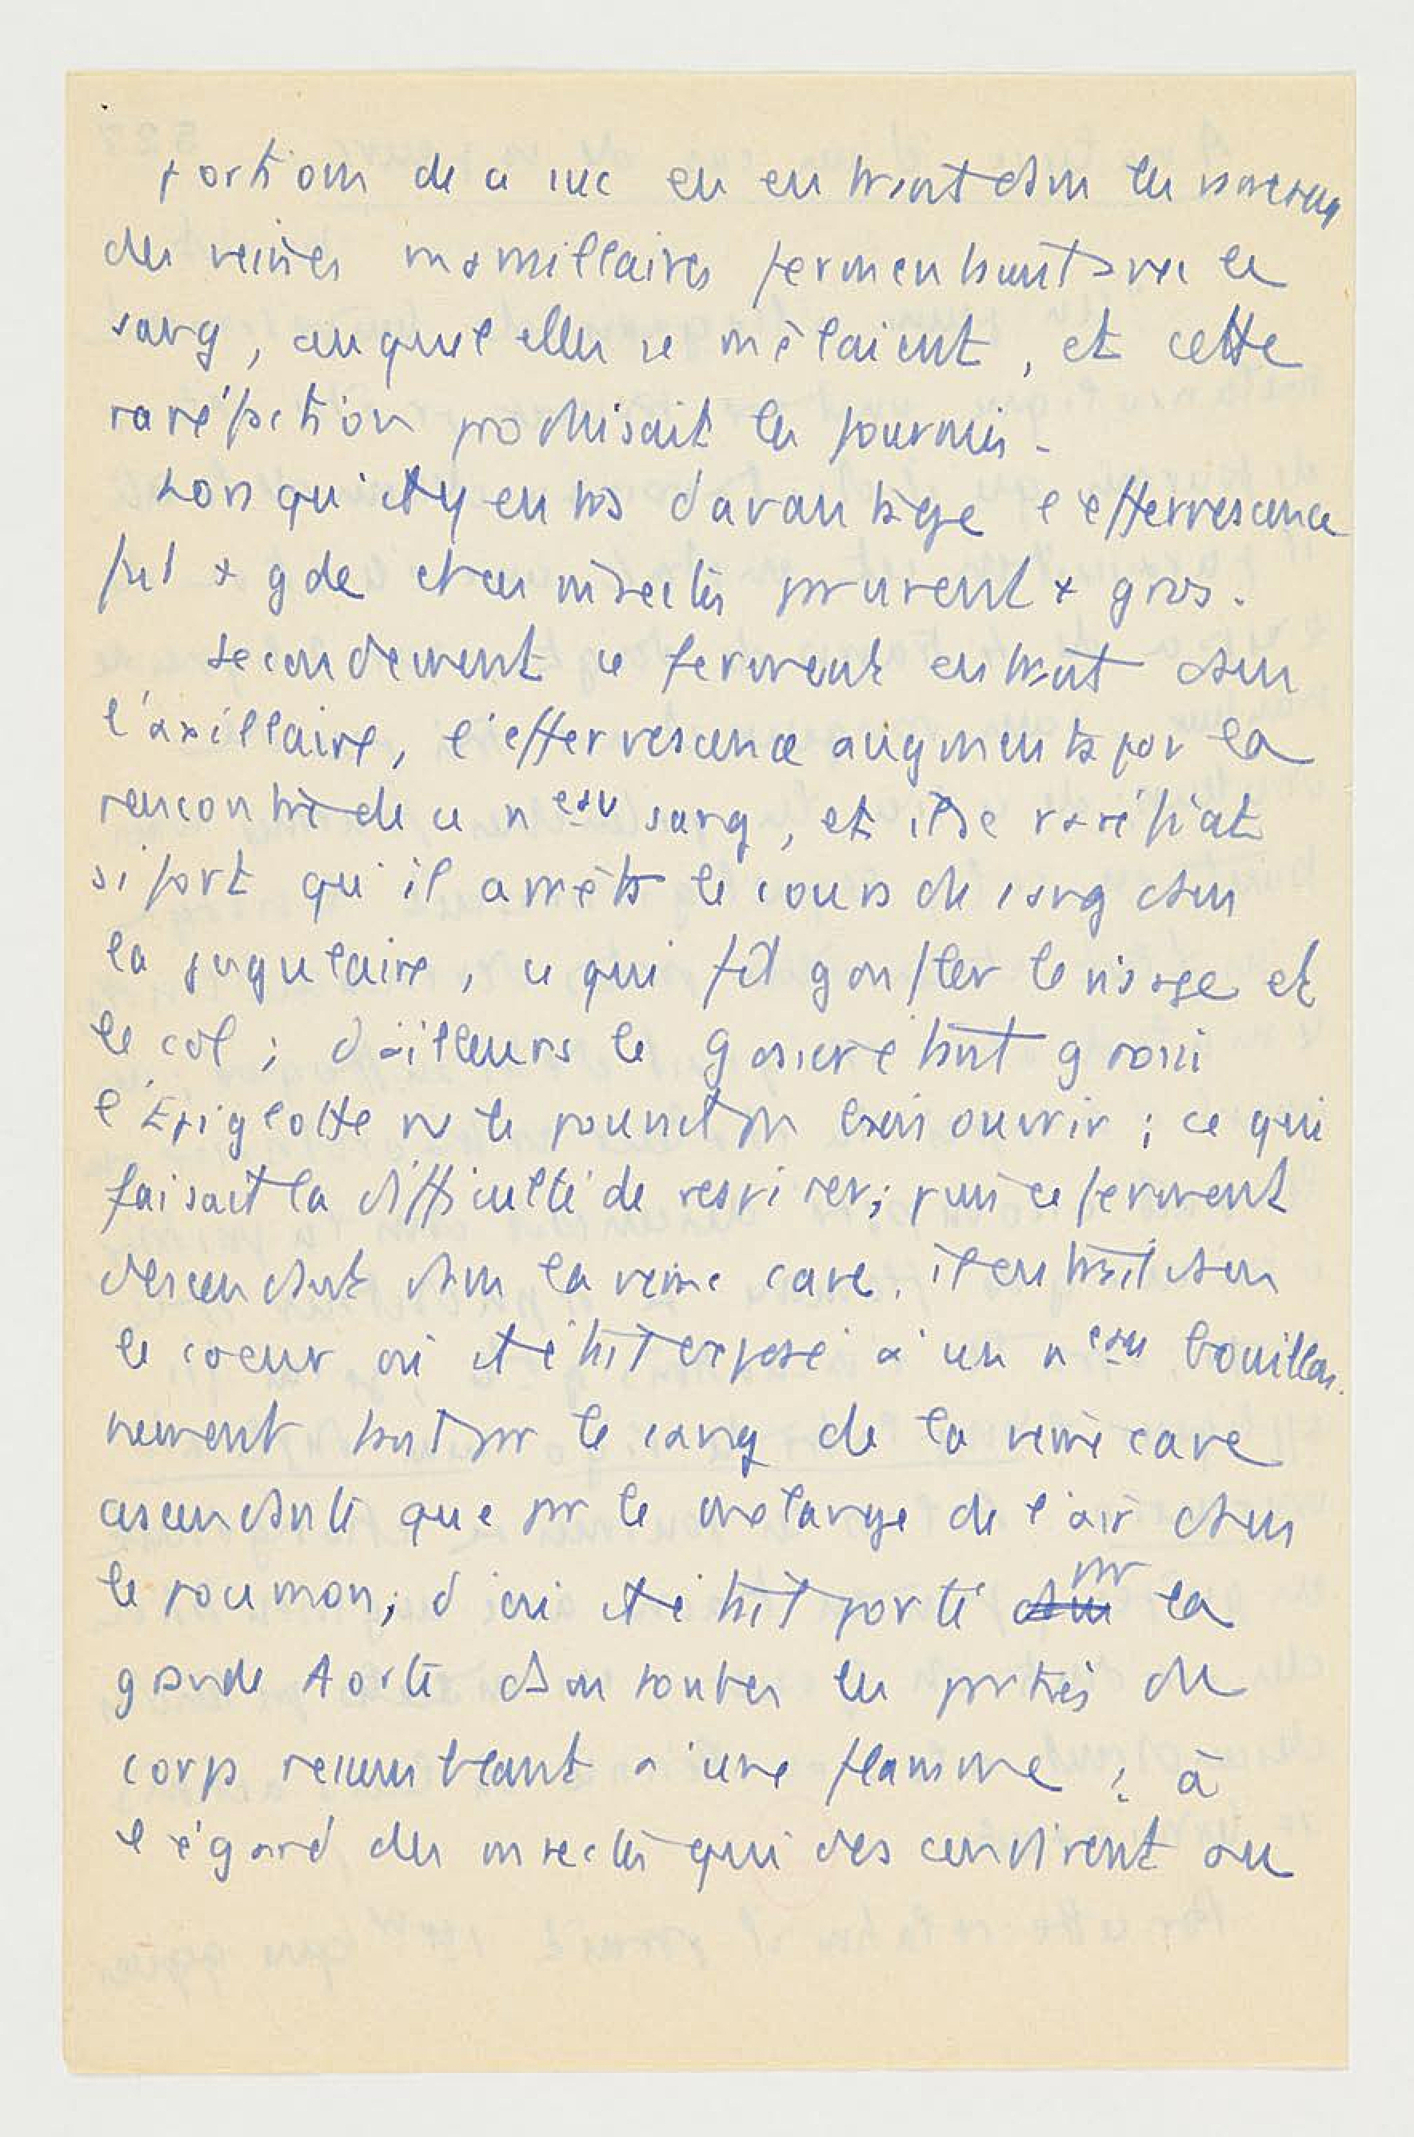 portions de ce suc en entrant dans les rameaux
des veines mamillaires fermentaient avec le
sang, auquel elles se mêlaient, et cette
raréfaction produisait les fourmis.
Lorsqu'il y entra davantage l'effervescence
fut + gde et ces insectes parurent + gros.
Secondement ce ferment entrant dans
l'axillaire, l'effervescence augmenta par la
rencontre de ce neau sang, et il se raréfiat
si fort qu'il arrêta le cours du sang dans
la jugulaire, ce qui fit gonfler le visage et
le col ; d'ailleurs le gosier étant grossi
l'Epiglotte ne se pouvait pr ouvrir ; ce qui
faisait la difficulté de respirer ; puis ce ferment
descendant dans la veine cave, il entrait dans
le coeur où il était exposé à un neau bouillon-
nement tant pr le sang de la veine cave
ascendante que pr le mélange de l'air dans
le poumon ; d'où il était porté pr la
grande Aorte dans toutes les parties du
corps ressemblant à une flamme ; à
l'égard des insectes qui descendirent au